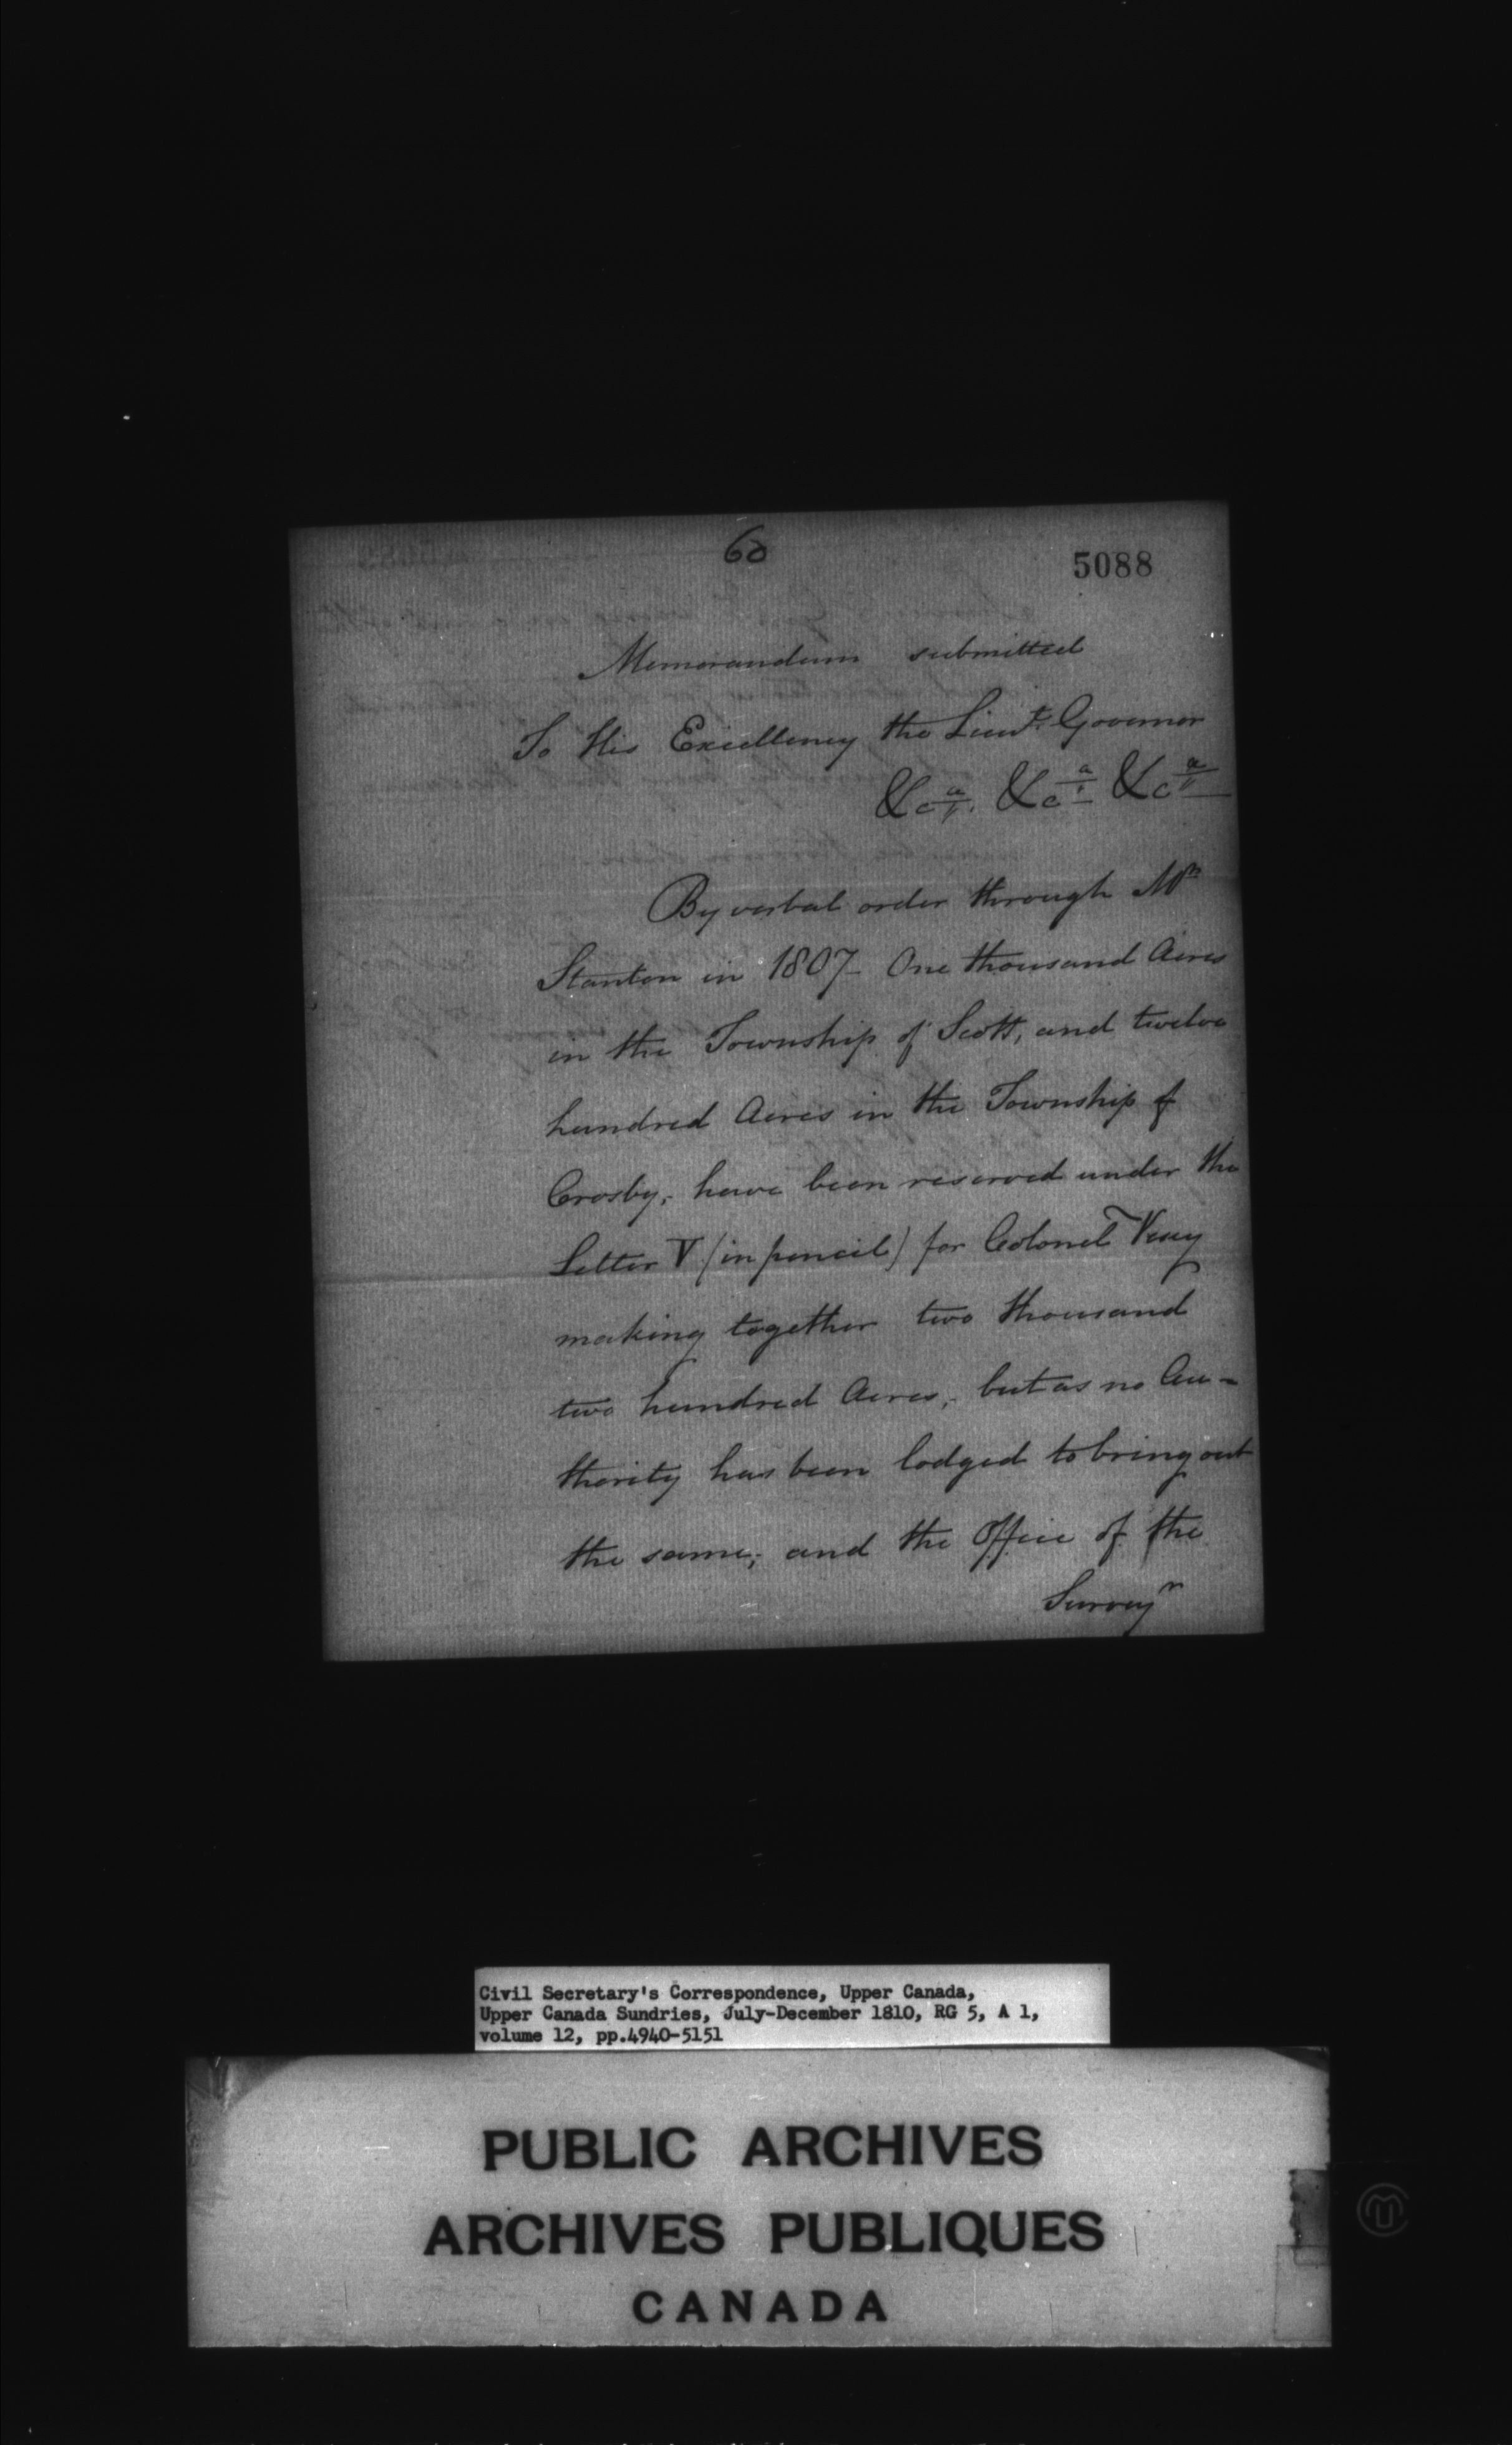 60
5088
Memorandum submitted
To His Excellency the Lieut. Governor
&ca. &ca &ca
By verbal order through Mr
Stanton in 1807 - One thousand Acres
in the Township of Scott, and twelve
hundred Acres in the Township of
Crosby, have been reserved under the
Letter V (in pencil) for Colonel Vesey
making together two thousand
two hundred Acres, but as no Au-
thority has been lodged to bring out
the same; and the Office of the
Surveyr
Civil Secretary's Correspondence, Upper Canada,
Upper Canada Sundries, July-December 1810, RG 5, A 1,
volume 12, pp.4940-5151
PUBLIC ARCHIVES
ARCHIVES PUBLIQUES
CANADA